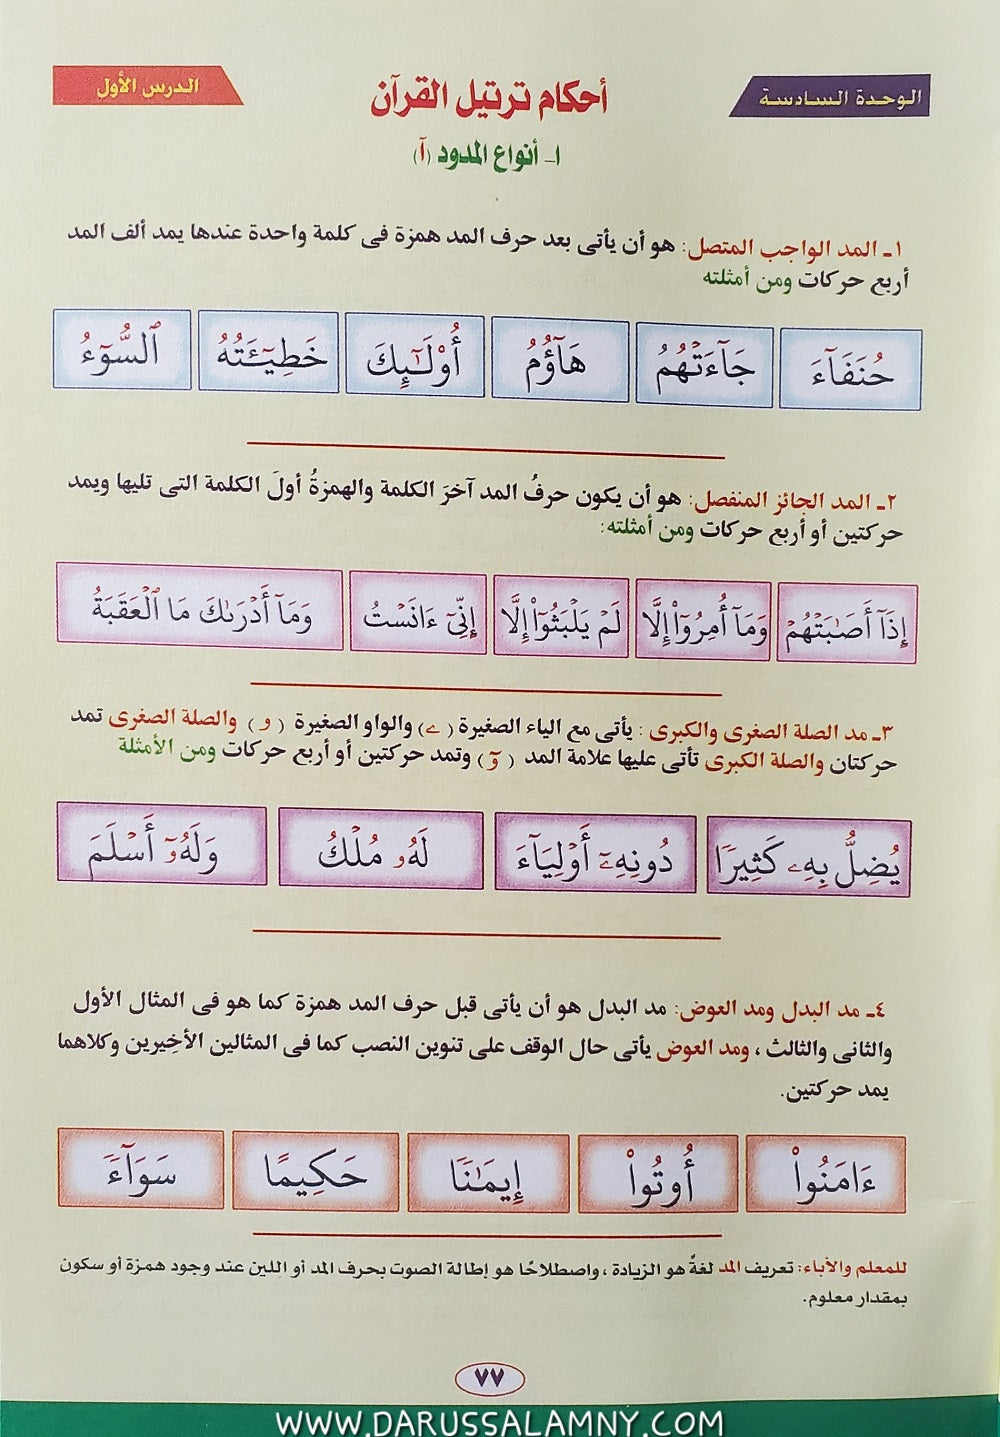 الوحدة السادسة
أحكام ترتيل القرآن
الدرس الأول
١ـ أنواع المدود (آ)
١ـ المد الواجب المتصل: هو أن يأتى بعد حرف المد همزة فى كلمة واحدة عندها يمد ألف المد
أربع حركات ومن أمثلته
حُنَفَآءَ جَآءَتْهُمُ هَآؤُمُ أُوْلَٰٓئِكَ خَطِيٓـَٔتُهُ ٱلسُّوٓءُ
٢ـ المد الجائز المنفصل: هو أن يكون حرفُ المد آخرَ الكلمة والهمزةُ أولَ الكلمة التى تليها ويمد
حركتين أو أربع حركات ومن أمثلته:
إِذَآ أَصَٰبَتْهُمْ وَمَآ أُمِرُوٓاْ إِلَّا لَمْ يَلْبَثُوٓاْ إِلَّا إِنِّىٓ ءَانَسْتُ وَمَآ أَدْرَىٰكَ مَا ٱلْعَقَبَةُ
٣ـ مد الصلة الصغرى والكبرى : يأتى مع الياء الصغيرة (ے) والواو الصغيرة ( و ) والصلة الصغرى تمد
حركتان والصلة الكبرى تأتى عليها علامة المد ( وٓ ) وتمد حركتين أو أربع حركات ومن الأمثلة
يُضِلُّ بِهِۦ كَثِيرًا دُونِهِۦٓ أَوْلِيَآءَ لَهُۥ مُلْكُ وَلَهُۥٓ أَسْلَمَ
٤ـ مد البدل ومد العوض: مد البدل هو أن يأتى قبل حرف المد همزة كما هو فى المثال الأول
والثانى والثالث ، ومد العوض يأتى حال الوقف على تنوين النصب كما فى المثالين الأخِيرين وكلاهما
يمد حركتين.
ءَامَنُواْ أُوتُواْ إِيمَٰنًا حَكِيمًا سَوَآءً
للمعلم والأباء: تعريف المد لغةً هو الزيادة ، واصطلاحًا هو إطالة الصوت بحرف المد أو اللين عند وجود همزة أو سكون
بمقدار معلوم.
٧٧
WWW.DARUSSALAMNY.COM